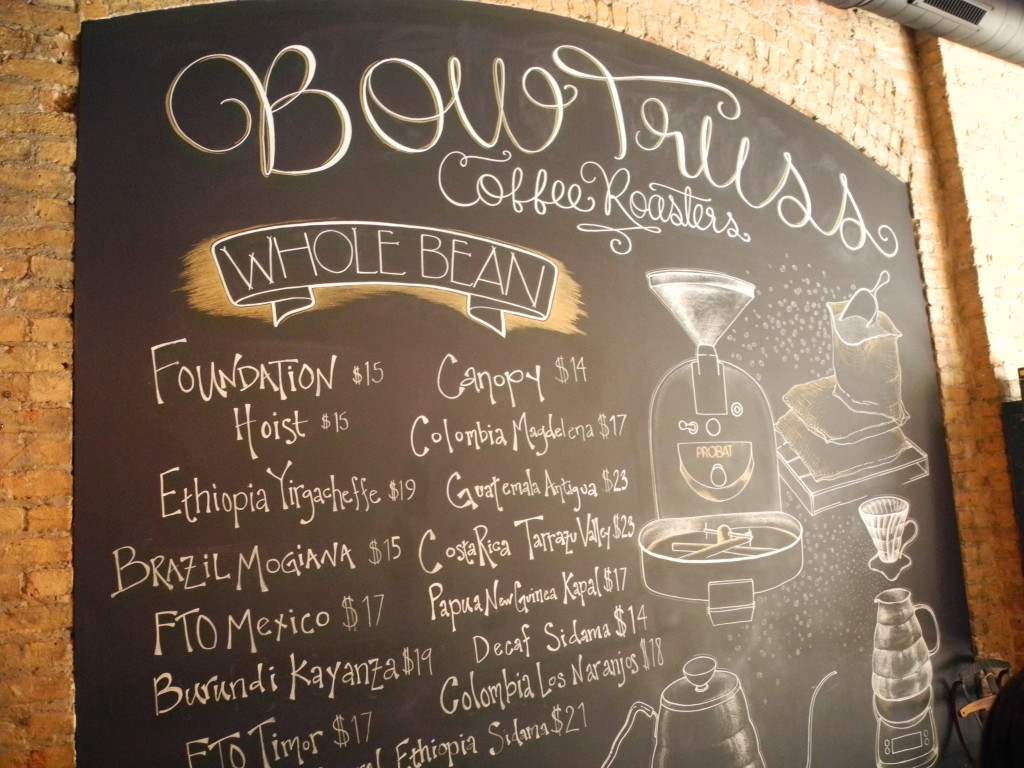 Bow Truss
Coffee Roasters
WHOLE BEAN
Foundation $15
Hoist $15
Ethiopia Yirgacheffe $19
Brazil Mogiana $15
FTO Mexico $17
Burundi Kayanza $19
FTO Timor $17
Canopy $14
Colombia Magdelena $17
Guatemala Antigua $23
Costa Rica Tarrazu Valley $23
Papua New Guinea Kapal $17
Decaf Sidama $14
Colombia Los Naranjos $18
Ethiopia Sidama $21
PROBAT